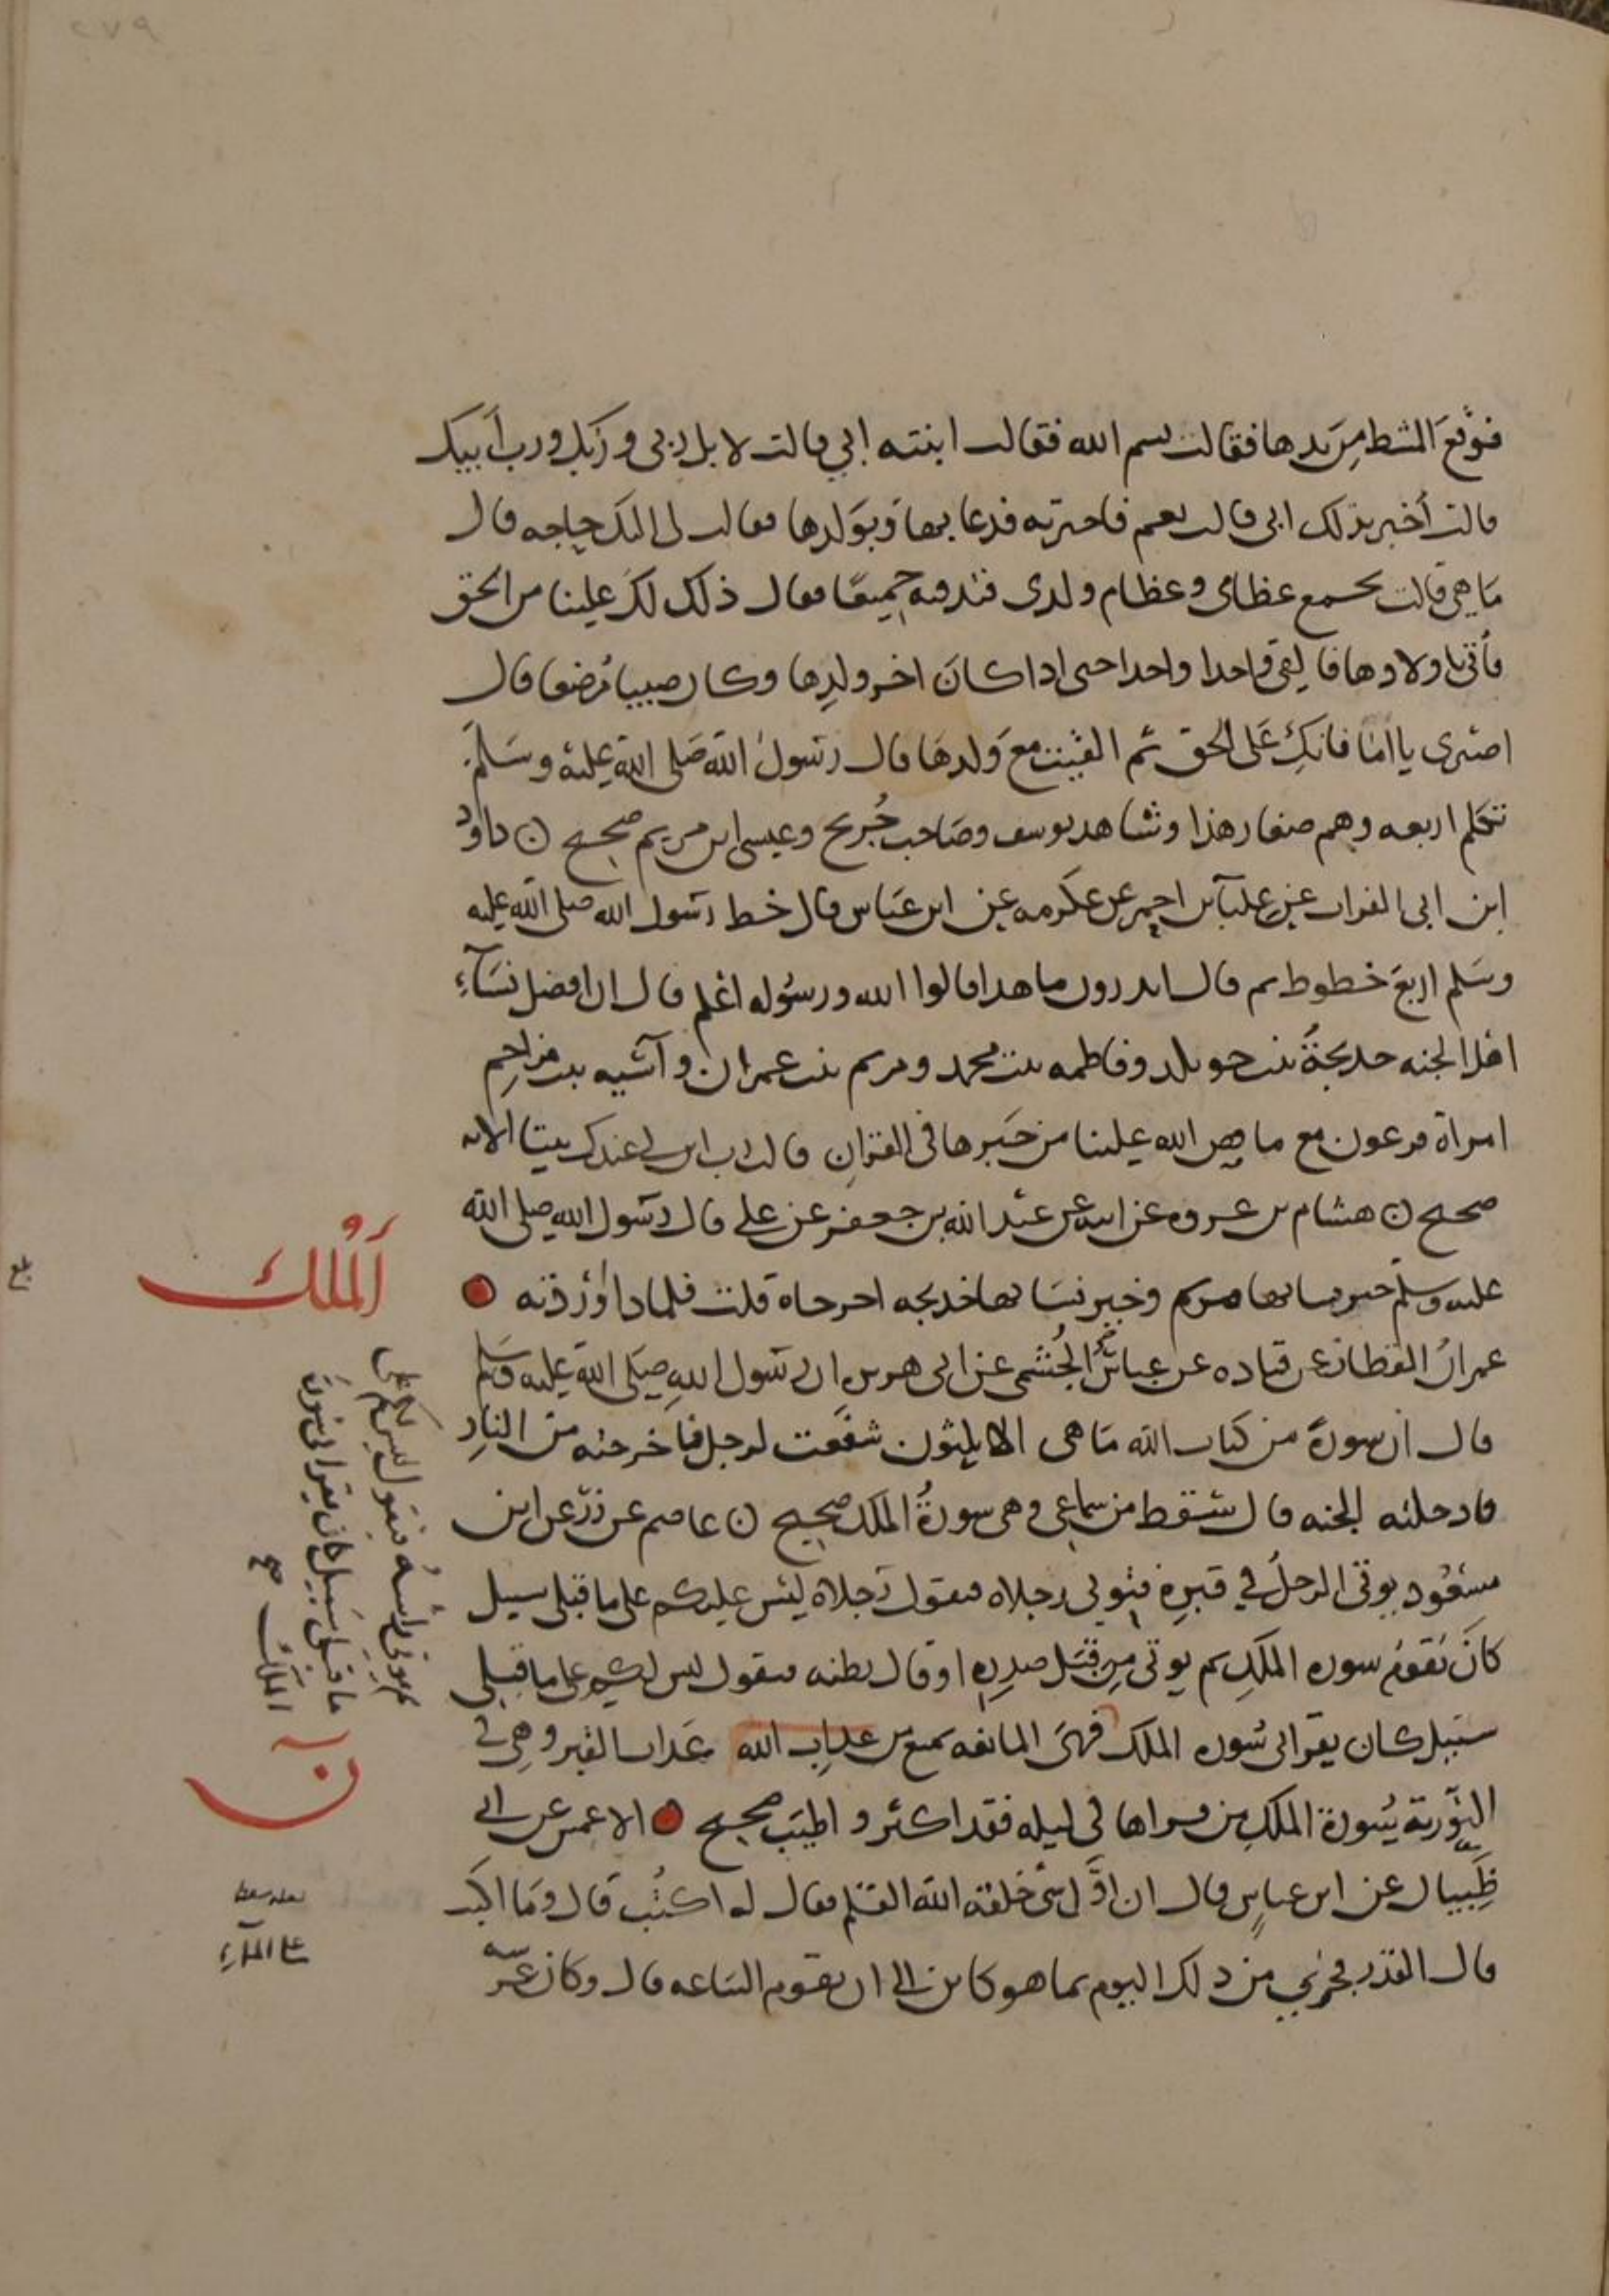 ٢٧٩
فوقع المشط من يدها فقالت بسم الله فقالت ابنته ابي قالت لا بل ربي وربك ورب أبيك
قالت أخبر بذلك ابي قالت نعم فاخبرته فدعا بها وبولدها فقالت لي اليك حاجه قال
ما هي قالت تجمع عظامي وعظام ولدي فتدفنه جميعا فقال ذلك لك علينا من الحق
فأتي باولادها فالقي واحدا واحدا حتى اذا كان اخر ولدها وكان صبيا مرضعا قال
اصبري يا اماه فانك على الحق ثم القيت مع ولدها قال رسول الله صلى الله عليه وسلم
تكلم اربعه وهم صغار هذا وشاهد يوسف وصاحب جريج وعيسى ابن مريم صحيح ن داود
ابن ابي الفرات عن علباء بن احمر عن عكرمه عن ابن عباس قال خط رسول الله صلى الله عليه
وسلم اربع خطوط ثم قال اتدرون ما هذا قالوا الله ورسوله اعلم قال ان افضل نساء
اهل الجنه خديجة بنت خويلد وفاطمه بنت محمد ومريم بنت عمران وآسيه بنت مزاحم
امراة فرعون مع ما قص الله علينا من خبرها في القران قالت رب ابن لي عندك بيتا الايه
صحيح ن هشام بن عروه عن ابيه عن عبد الله بن جعفر عن علي قال رسول الله صلى الله
عليه وسلم خير نسايها مريم وخير نسايها خديجه اخرجاه قلت فلماذا أوردته
الملك
بلغ
عمران القطان عن قتاده عن عباس الجشمي عن ابي هريره ان رسول الله صلى الله عليه وسلم
قال ان سورة من كتاب الله ما هي الا ثلثون شفعت لرجل فاخرجته من النار
فادخلته الجنه قال سقط من سماعي وهي سورة الملك صحيح ن عاصم عن زر عن ابن
مسعود يوتى الرجل في قبره فتوتى رجلاه فتقول رجلاه ليس عليكم على ما قبلي سبيل
كان يقوم سوره الملك ثم يوتى من قبل صدره او قال بطنه فيقول ليس لكم على ما قبلي
سبيل كان يقرا لي سوره الملك فهي المانعه تمنع من عذاب الله عذاب القبر وهي في
التورية سورة الملك من قراها في ليله فقد اكثر واطيب صحيح الاعمش عن ابي
ظبيان عن ابن عباس قال ان اول شي خلقه الله القلم فقال له اكتب قال وما اكتب
قال القدر فجرى من ذلك اليوم بما هو كاين الى ان تقوم الساعه قال وكان عرشه
ثم يوتى راسه فيقول ليس لكم على
ما قبلي سبيل كان يقرا لي سورة
الملك صح
ن
على الماء